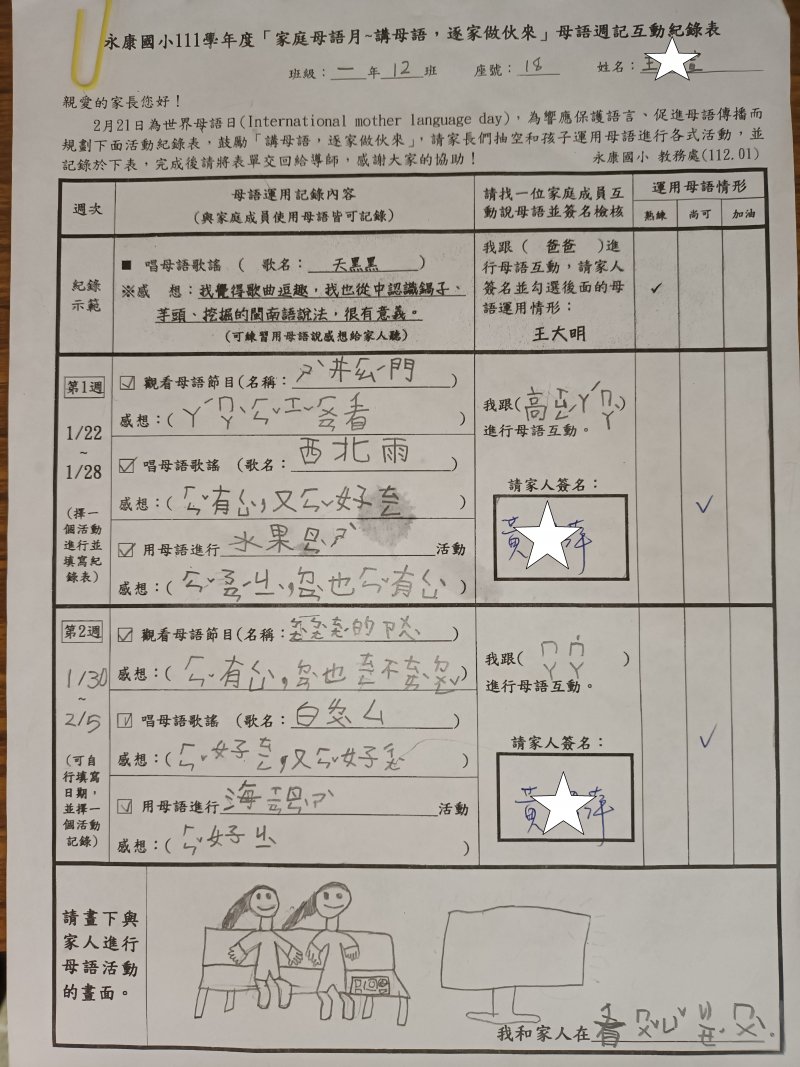 永康國小111學年度「家庭母語月~講母語，逐家做伙來」母語週記互動紀錄表
班級：一年12班 座號：18 姓名：王
親愛的家長您好！
2月21日為世界母語日(International mother language day)，為響應保護語言、促進母語傳播而
規劃下面活動紀錄表，鼓勵「講母語，逐家做伙來」，請家長們抽空和孩子運用母語進行各式活動，並
記錄於下表，完成後請將表單交回給導師，感謝大家的協助！ 永康國小 教務處(112.01)
週次
母語運用記錄內容
(與家庭成員使用母語皆可記錄)
請找一位家庭成員互
動說母語並簽名檢核
運用母語情形
熟練 尚可 加油
紀錄
示範
■ 唱母語歌謠 ( 歌名：天黑黑)
※感 想：我覺得歌曲逗趣，我也從中認識鍋子、
芋頭、挖掘的閩南語說法，很有意義。
(可練習用母語說感想給家人聽)
我跟(爸爸)進
行母語互動，請家人
簽名並勾選後面的母
語運用情形：
王大明
✓
第1週
1/22
~
1/28
(擇一
個活動
進行並
填寫紀
錄表)
☑ 觀看母語節目(名稱：門)
感想：(看)
☑ 唱母語歌謠 (歌名：西北雨)
感想：(有，又好)
☑ 用母語進行水果活動
感想：(，也有)
我跟(高)
進行母語互動。
請家人簽名：
黃萍
✓
第2週
1/30
~
2/5
(可自
行填寫
日期，
並擇一
個活動
記錄)
☑ 觀看母語節目(名稱：的)
感想：(有，也不)
☑ 唱母語歌謠 (歌名：白)
感想：(好，又好)
☑ 用母語進行海活動
感想：(好)
我跟(ㄇㄚ ㄇㄚ˙)
進行母語互動。
請家人簽名：
黃萍
✓
請畫下與
家人進行
母語活動
的畫面。
我和家人在看